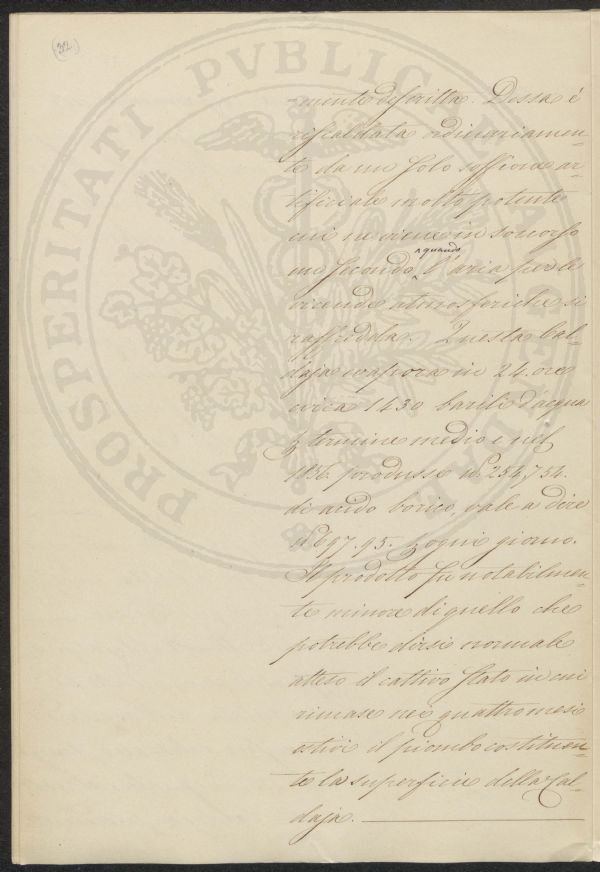 (32)
PROSPERITATI PVBLICAE AVGENDAE
-mente descritta. Dessa è
riscaldata ordinariamen-
te da un solo soffione ar-
tificiale molto potente
cui ne viene in soccorso
un secondo ^quando l'aria per le
vicende atmosferiche si
raffredda. Questa Cal-
daja evapora in 24. ore
circa 1430 barili d'acqua
p termine medio e nel
1856. produsse 254,734.
di acido borico, vale a dire
697.95. p ogni giorno.
Il prodotto fu notabilmen-
te minore di quello che
potrebbe dirsi normale
atteso il cattivo stato in cui
rimase nei quattro mesi
estivi il piombo costituen-
te la superficie della Cal-
daja.